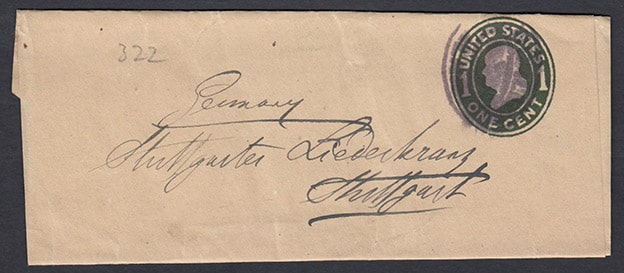 322
UNITED STATES
1 1
ONE CENT
Germany
Stuttgarter Liederkranz
Stuttgart